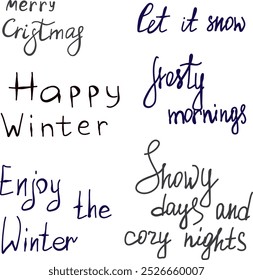 Merry
Cristmas
Happy
Winter
Enjoy
the
Winter
let it snow
frosty
mornings
Snowy
days and
cozy nights
shutterstock.com · 2526660007